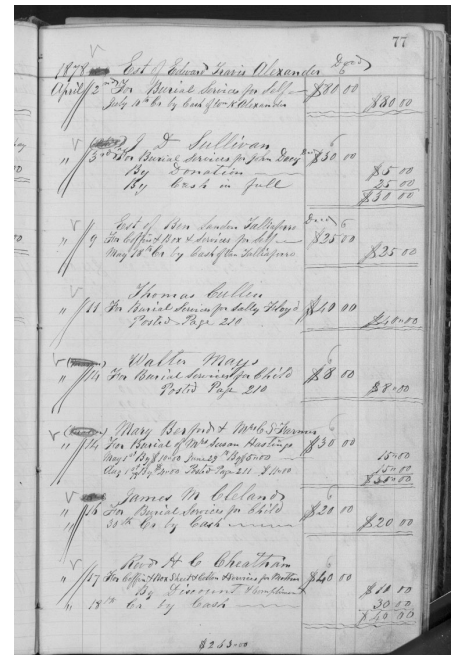 77
1878 Est of Edward Travis Alexander Decd
April 2nd For Burial Services for Self $80 00
July 10th Cr by Cash of Wm K Alexander $80 00
J D Sullivan
" 3rd For Burial Services for John $30 00
By Donation $5 00
By Cash in full 25 00
$30 00
Est of Ben Landon Talliaferro Decd
" 9 For Coffin & Box & Services for Self $25 00
May 18th Cr by Cash of Talliaferro $25 00
Thomas Cullen
" 11 For Burial Services for Sally Floyd $40 00
Posted Page 210 $40 00
Walter Mays
" 14 For Burial Services for Child $8 00
Posted Page 210 $8 00
Mary Berford & Mrs C
" 14 For Burial of Mrs Susan Hastings $30 00
May 5th By $10.00 June 29th By $5.00 15 00
Aug 1st Posted Page 211 15 00
$30 00
James M Cleland
" 16 For Burial Services for Child $20 00
30th Cr by Cash $20 00
Revd H C Cheatham
" 17 For Coffin & Box & Services for Mother $40 00
By Discount $10 00
" 18th Cr by Cash 30 00
$40 00